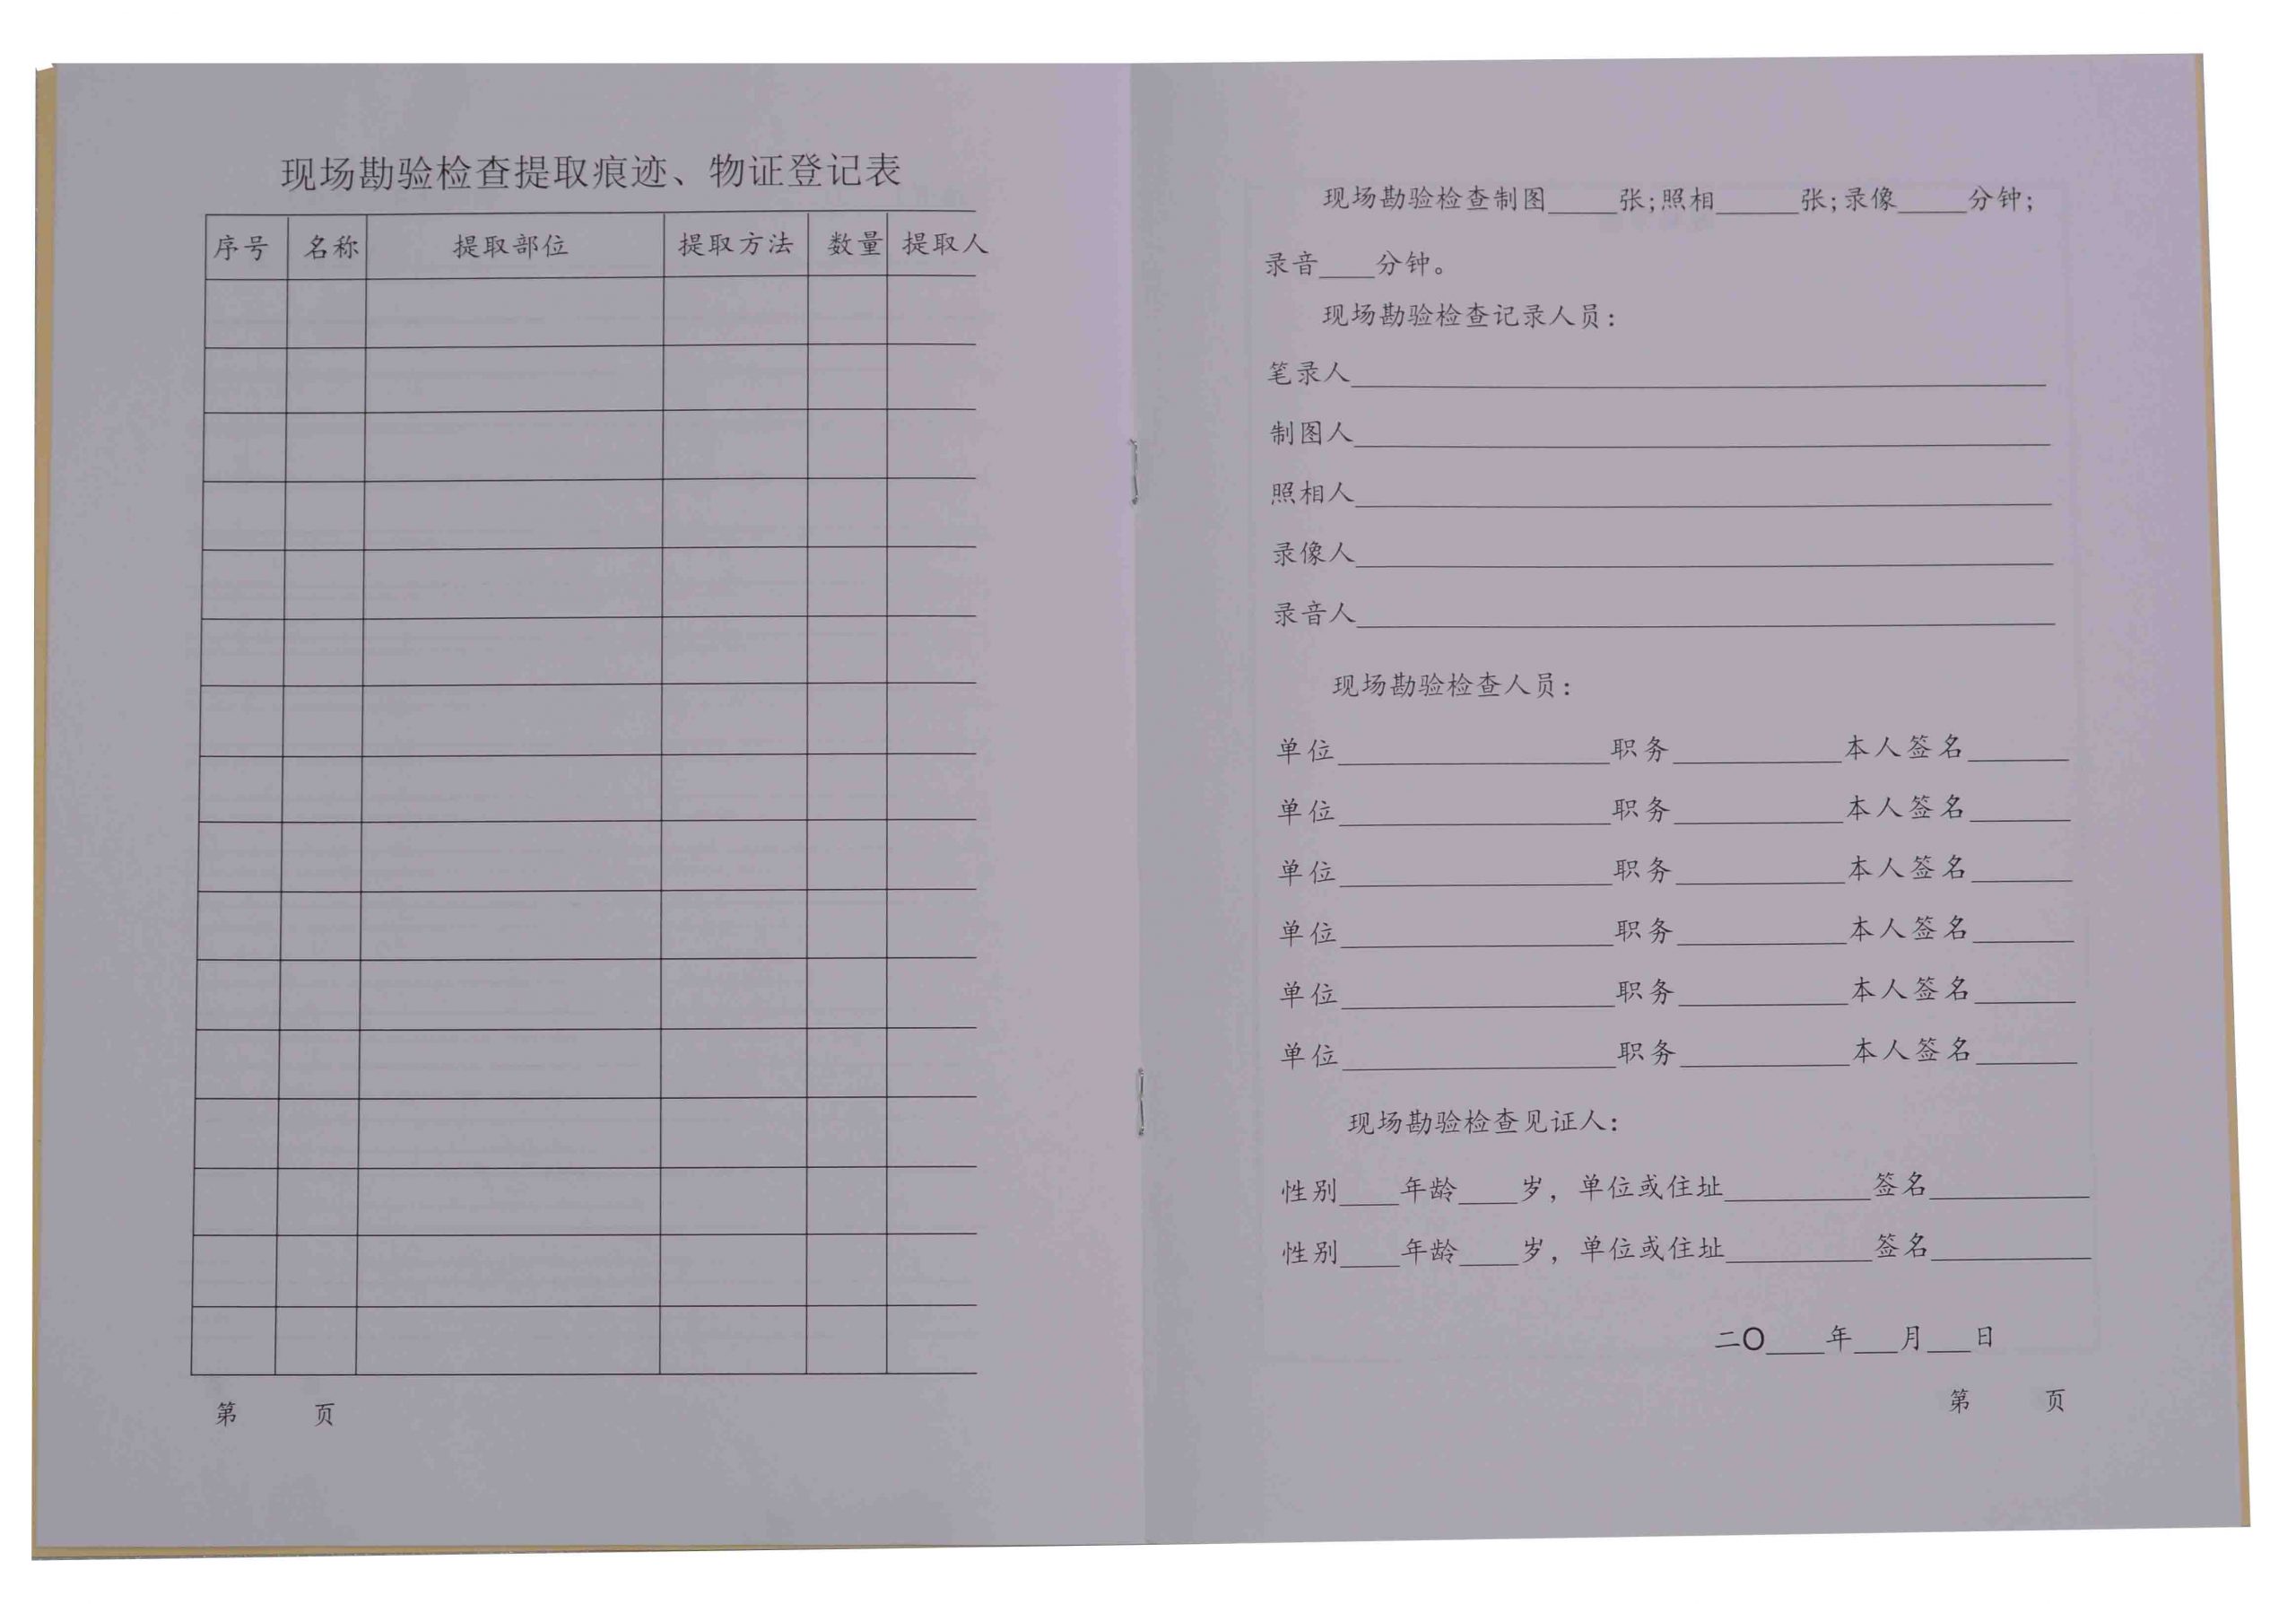 现场勘验检查提取痕迹、物证登记表
序号 名称 提取部位 提取方法 数量 提取人
第 页
现场勘验检查制图_____张;照相______张;录像_____分钟;
录音____分钟。
现场勘验检查记录人员:
笔录人____________________
制图人____________________
照相人____________________
录像人____________________
录音人____________________
现场勘验检查人员:
单位____________职务________本人签名_____
单位____________职务________本人签名_____
单位____________职务________本人签名_____
单位____________职务________本人签名_____
单位____________职务________本人签名_____
单位____________职务________本人签名_____
现场勘验检查见证人:
性别____年龄____岁，单位或住址__________签名___________
性别____年龄____岁，单位或住址__________签名___________
二〇____年___月___日
第 页